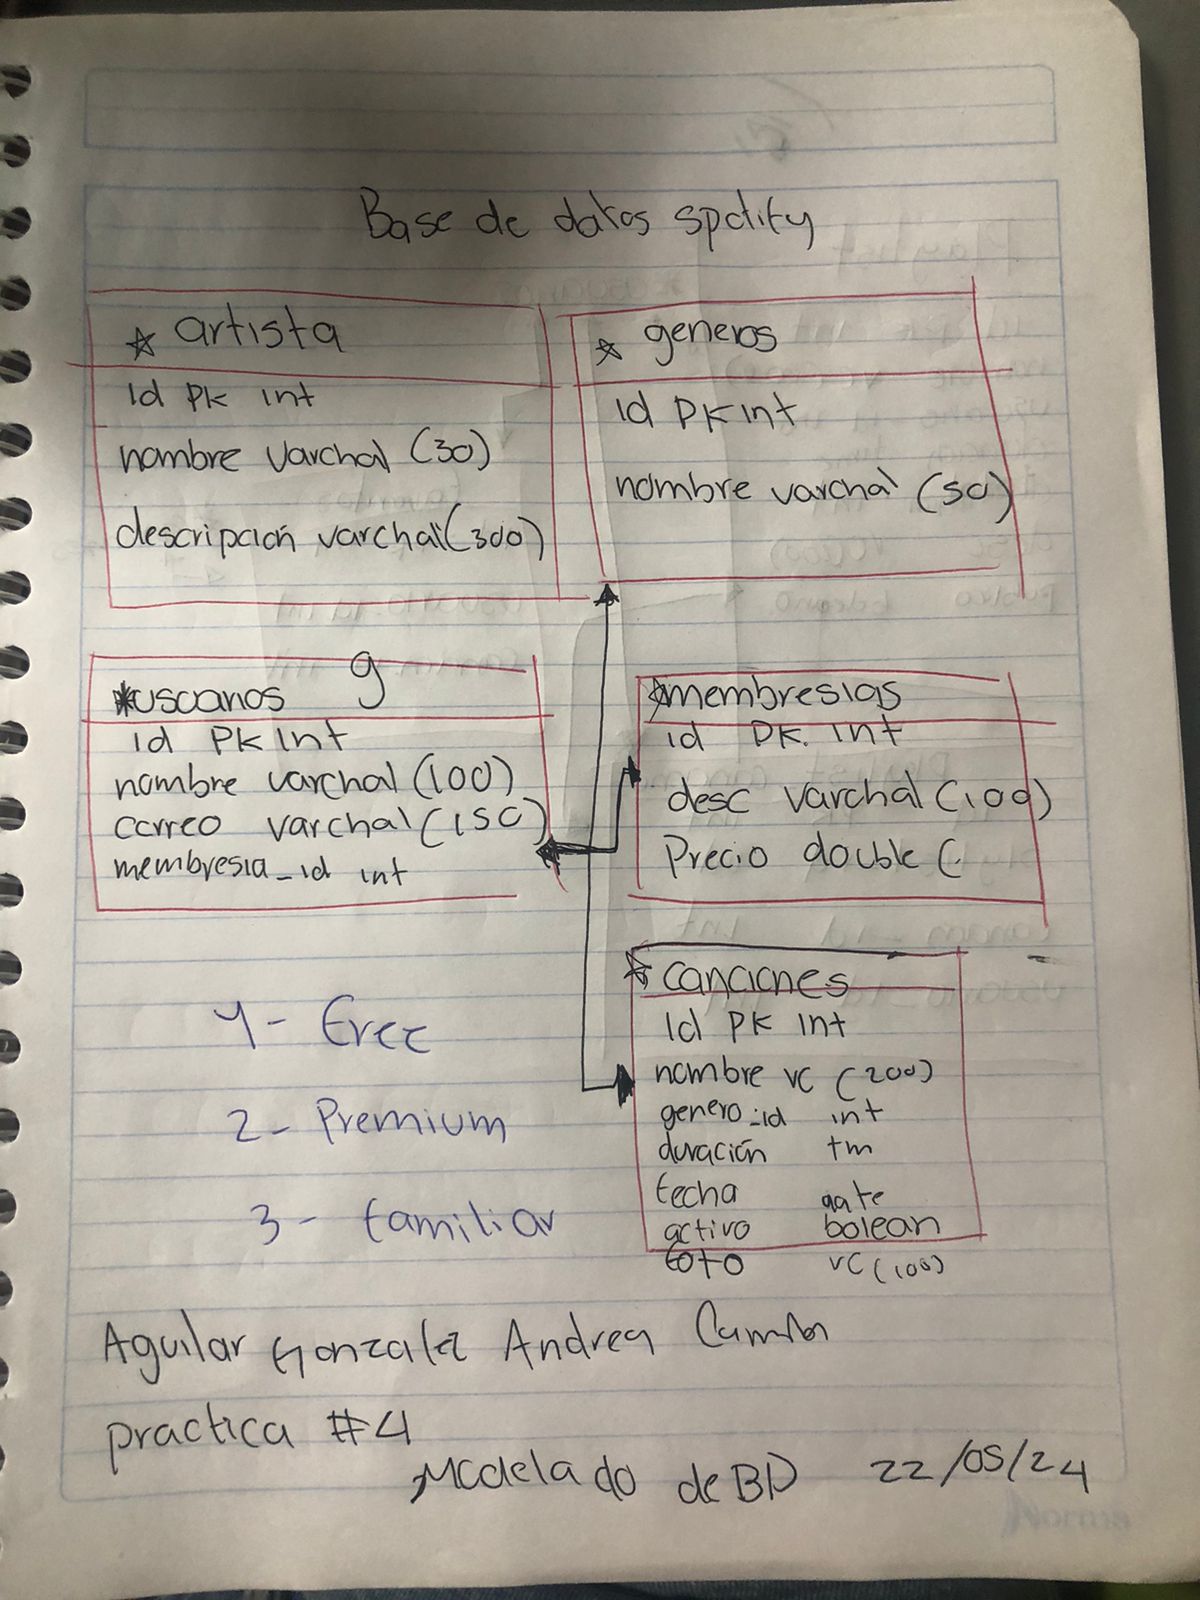 Base de datos spotify
artista
id PK int
nombre varchal (30)
descripción varchal (300)
generos
id PK int
nombre varchal (50)
usuarios
id PK int
nombre varchal (100)
correo varchal (150)
membresia_id int
membresias
id PK. int
desc varchal (100)
Precio double (.
canciones
id PK int
nombre vc (200)
genero_id int
duración tm
fecha date
activo bolean
foto vc (100)
1- Free
2- Premium
3- familiar
Aguilar Gonzalez Andrea Camila
practica #4
Modelado de BD 22/05/24
Norma